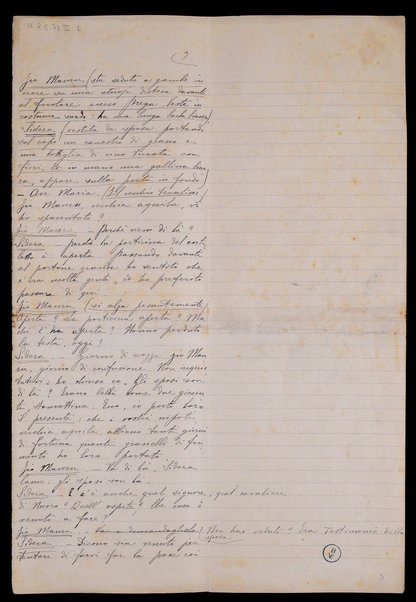 A.R.C. 73 III. 2
(2
Zio Maureu (sta seduto a gambe in
croce su una stuoja distesa davanti
al focolare acceso. Prega. Veste in
costume sardo: ha una lunga barba bianca)
Sidera (vestita da sposa, portando
sul capo un canestro di grano e
una bottiglia di vino turata con
fiori, e in mano una gallina bian
ca, appare sulla porta in fondo)
– Ave Maria. (Il vecchio trasalisce)
Zio Maureu, vecchia aquila, vi
ho spaventato?
Zio Maureu – Perché vieni di là?
Sidera – Perché la porticina del cortiletto è aperta. Passando davanti
al portone grande ho sentito che
c'era molta gente, ed ho preferito
passare di qui.
Zio Maureu (si alza pesantemente)
Aperta? La porticina aperta? Ma
chi l'ha aperta? Hanno perduto
la testa, oggi?
Sidera – Giorno di nozze, zio Mau
reu, giorno di confusione. Non inquie
tatevi: ho chiuso io. Gli sposi son
di là? Erano belli come due giacin
ti, stamattina. Ecco, io porto loro
il presente: che i vostri nipoti
vecchia aquila, abbiano tanti giorni
di fortuna quanti granelli di fru
mento ho loro portato.
Zio Maureu. – Va di là, Sidera
gli sposi son là.
Sidera – E c'è anche quel signore, quel cavaliere
di Nuoro? Quell'ospite? Che cosa è
venuto a fare?
Zio Maureu – Va a domandaglielo! Non hai veduto? Era testimonio della
sposa.
Sidera – Dicono sia venuto per
tentare di farvi far la pace coi
3